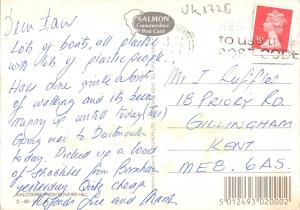 Dear Ian
Lots of boats, all plastic
with lots of plastic people.
Have done quite a bit
of walking and its been
sunny up until today (Tues)
Going over to Dartmouth
today. Picked up a load
of Shackles from Bonham
yesterday. Quite cheap
SALMON
Cameracolour
Post Card
UK1726
to use
POSTCODE
Mr I Ruffles
18 PRIORY RD
GILLINGHAM
KENT.
ME8. 6AS.
SALCOMBE FROM SNAPES HILL
5 012493 020002